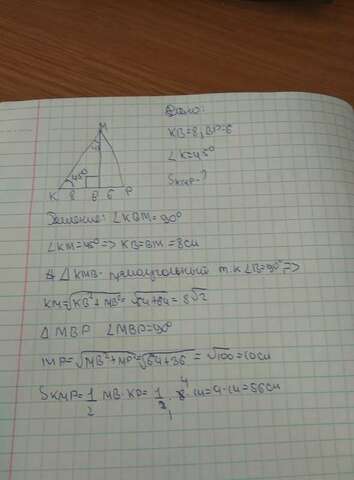 Дано:
M
KB=8, BP=6
∠K=45°
45°
Sкмр-?
K 8 B 6 P
Решение: ∠KBM=90°
∠KM=45° => KB=BM=8см
△KMB-прямоугольный т.к ∠B=90° =>
KM=√KB²+MB²=√64+64=8√2
△MBP ∠MBP=90°
MP=√MB²+MP²=√64+36=√100=10см
Sкмр=1/2 MB·KP=1/2·8·14=4·14=56см